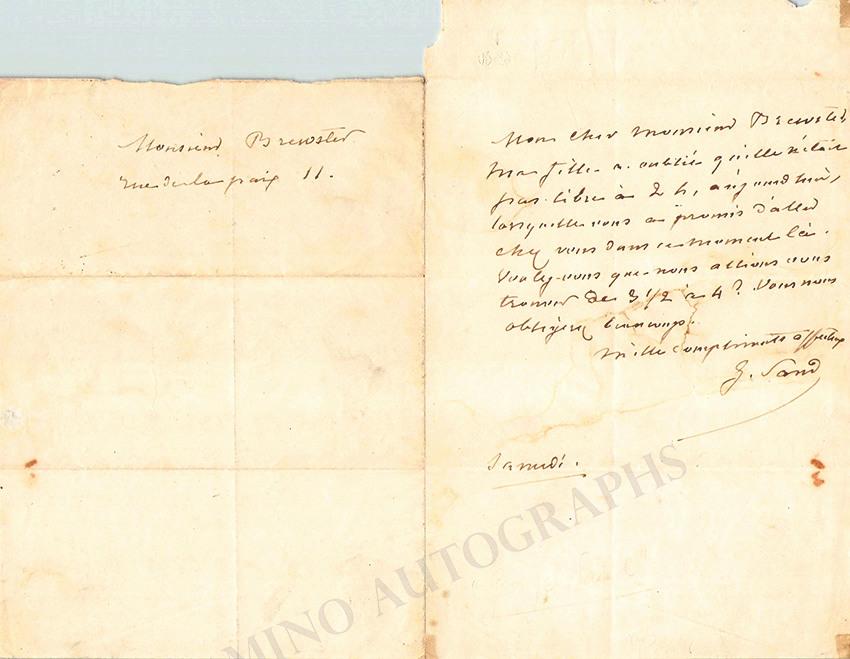 Monsieur Brewster
rue de la paix 11.
Mon cher monsieur Brewster,
ma fille a oublié qu'elle n'était
pas libre à 2 h, aujourd'hui,
lorsqu'elle vous a promis d'aller
chez vous dans ce moment là.
Voulez-vous que nous allions vous
trouver de 3 1/2 à 4? Vous nous
obligerez beaucoup.
mille compliments affectueux
G. Sand
Samedi.
MINO AUTOGRAPHS